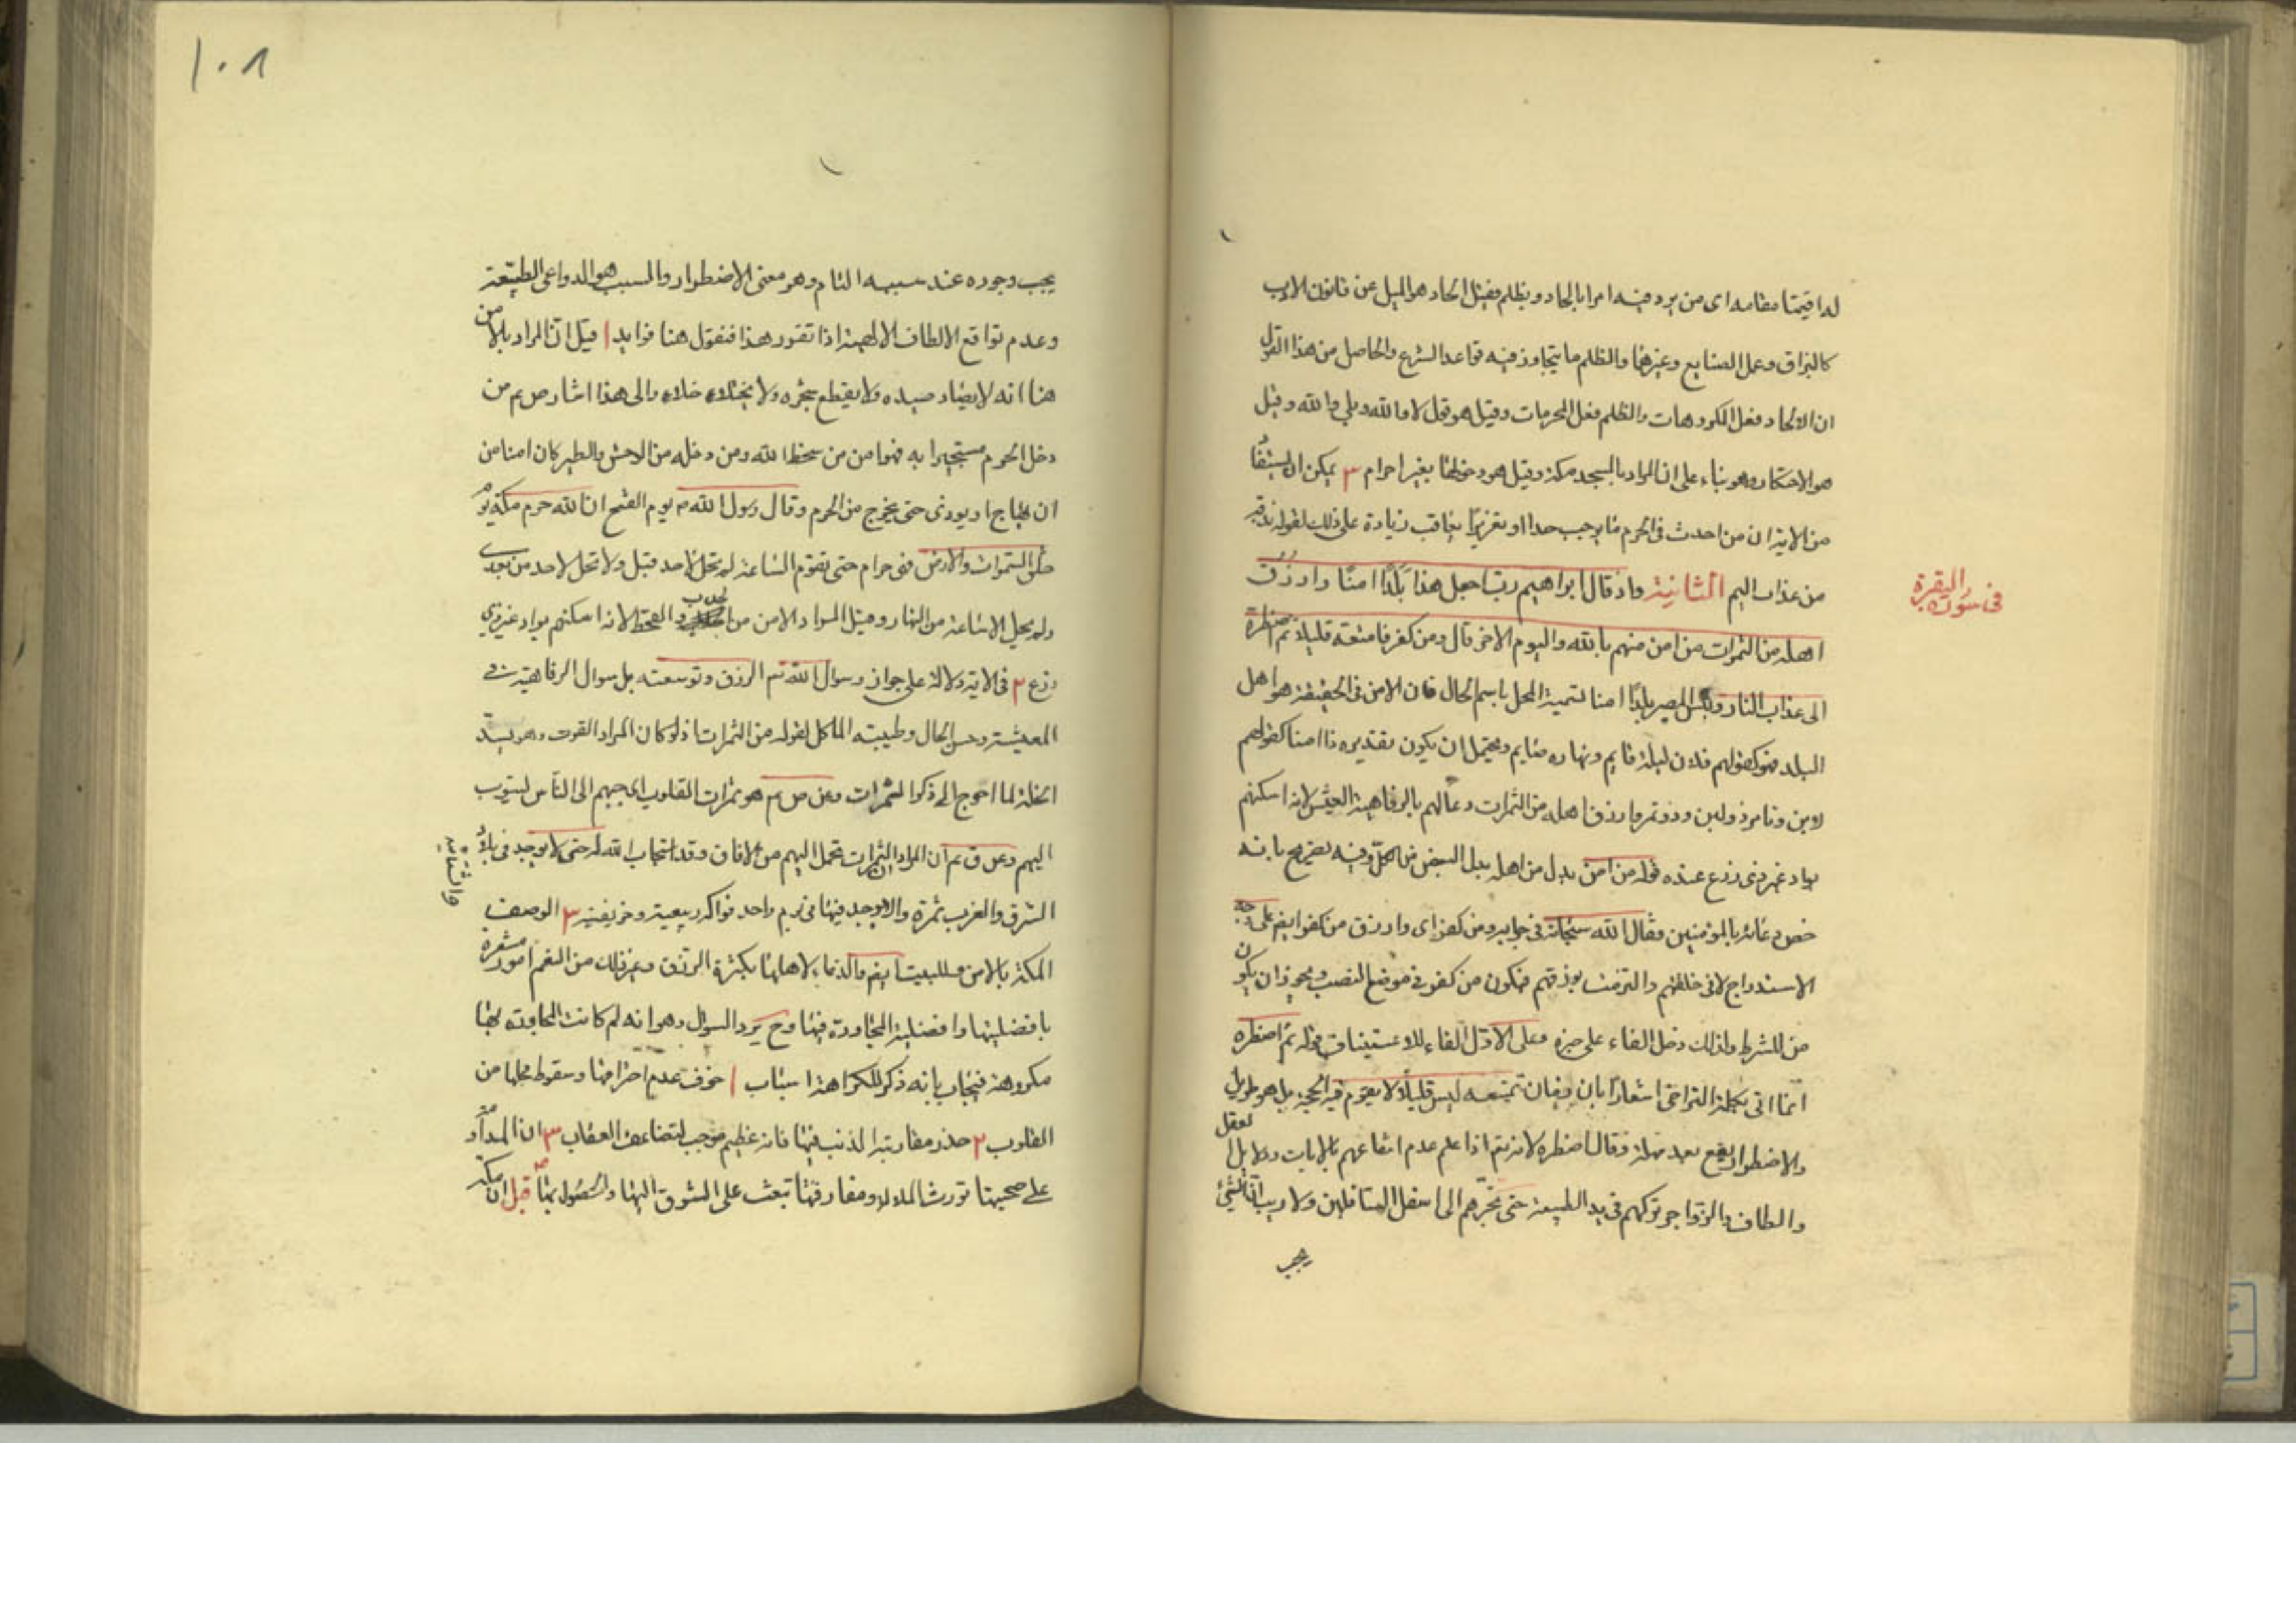 له اقيمتا مقامه اى من يرد فيه امرا بالحاد وبظلم فقيل الحاد هو الميل عن قانون الادب
كالبزاق وعمل الصنايع وغيرهما والظلم ما يتجاوز فيه قواعد الشرع والحاصل من هذا القول
ان الالحاد فعل المكروهات والظلم فعل المحرمات وقيل هو قول لا والله وبلى والله وقيل
هو الاحتكار وهو بناء على ان المراد بالمسجد مكة وقيل هو دخولها بغير احرام ٣ يمكن ان يستفا
من الاية ان من احدث فى الحرم ما يوجب حدا او تعزيرًا يعاقب زيادة على ذلك لقوله نذقه
من عذاب اليم الثانية واذ قال ابراهيم رب اجعل هذا بلدًا امنًا وارزق
فى سورة البقرة
اهله من الثمرات من امن منهم بالله واليوم الاخر قال ومن كفر فامتعه قليلا ثم اضطره
الى عذاب النار وبئس المصير بلدًا امنا تسمية المحل باسم الحال فان الامن فى الحقيقة هو اهل
البلد فهو كقولهم فلان ليله قايم ونهاره صايم ويحتمل ان يكون تقديره ذا امنا كقولهم
لابن وتامر ذو لبن وذو تمر وارزق اهله من الثمرات دعا لهم بالرفاهية العيش لانه اسكنهم
بواد غير ذى زرع عنده قوله من امن بدل من اهله بدل البعض من الكل وفيه تصريح بانه
خص دعائه بالمؤمنين فقال الله سبحانه فى جوابه ومن كفر اى وارزق من كفر ايضم على جهة
الاستدراج لانى خلقتهم والتزمت برزقهم فيكون من كفر فى موضع النصب ويجوز ان يكون
من للشرط ولذلك دخل الفاء على خبره وعلى الاول الفاء للاستيناف قوله ثم اضطره
انما اتى بكلمة التراخى اشعارًا بان زمان تمتيعه ليس قليلًا لا يقوم فيه الحجة بل هو طويل
والاضطرار يقع بعد مهلة وقال اضطره لانه تعم اذا علم عدم انتفاعهم بالايات ودلايل العقل
والطاف والزواجر تركهم فى يد الطبيعة حتى تجرهم الى اسفل السافلين ولا ريب ان الشئ
يجب
١٠٨
يجب وجوده عند سببه التام وهو معنى الاضطرار والمسبب هو الدواعى الطبيعة
وعدم تواقع الالطاف الالهية اذا تقرر هذا فنقول هنا فوايد ا قيل ان المراد بالامن
هنا انه لا يصاد صيده ولا يقطع شجره ولا يختلاء خلاه والى هذا اشار ص عم من
دخل الحرم مستجيرا به فهو امن من سخط الله ومن دخله من الوحش والطير كان امنا من
ان يهاج او يوذى حتى يخرج من الحرم وقال رسول الله ص يوم الفتح ان الله حرم مكة يوم
خلق السموات والارض فهى حرام حتى تقوم الساعة لم تحل لاحد قبل ولا تحل لاحد من بعدى
ولم يحل الا ساعة من النهار وقيل المراد الامن من الجدب والقحط لانه اسكنهم بواد غير ذى
زرع ٢ فى الاية دلالة على جواز سوال الله تعم الرزق وتوسعته بل سوال الرفاهية فى
المعيشة وحسن الحال وطيبته الماكل لقوله من الثمرات اذ لو كان المراد القوت وهو يسد
الخلة لما احوج الى ذكر الثمرات وعن ص عم هو ثمرات القلوب اى حبهم الى الناس ليثوب
اليهم وعن ق عم ان المراد الثمرات تحمل اليهم من الافاق وقد استجاب الله له حتى لا يوجد فى بلاد
الشرق والغرب ثمرة والا يوجد فيها فى يوم واحد فواكه ربيعية وخريفية ٣ الوصف
والشتائية
المكة بالامن وللبيت ايضم والدعاء لاهلها بكثرة الرزق وغير ذلك من النعم امور مشعرة
بافضليتها وافضلية المجاورة فيها وح يرد السوال وهو انه لم كانت المجاورة بها
مكروهة فيجاب بانه ذكر للكراهة اسباب ا خوف عدم احترامها وسقوط محلها من
القلوب ٢ حذر مقاربة الذنب فيها فانه عظيم موجب لتضاعف العقاب ٣ ان المداومة
على صحبتها تورث الملالة ومفارقتها تبعث على الشوق اليها والحصول بها قيل ان مكة